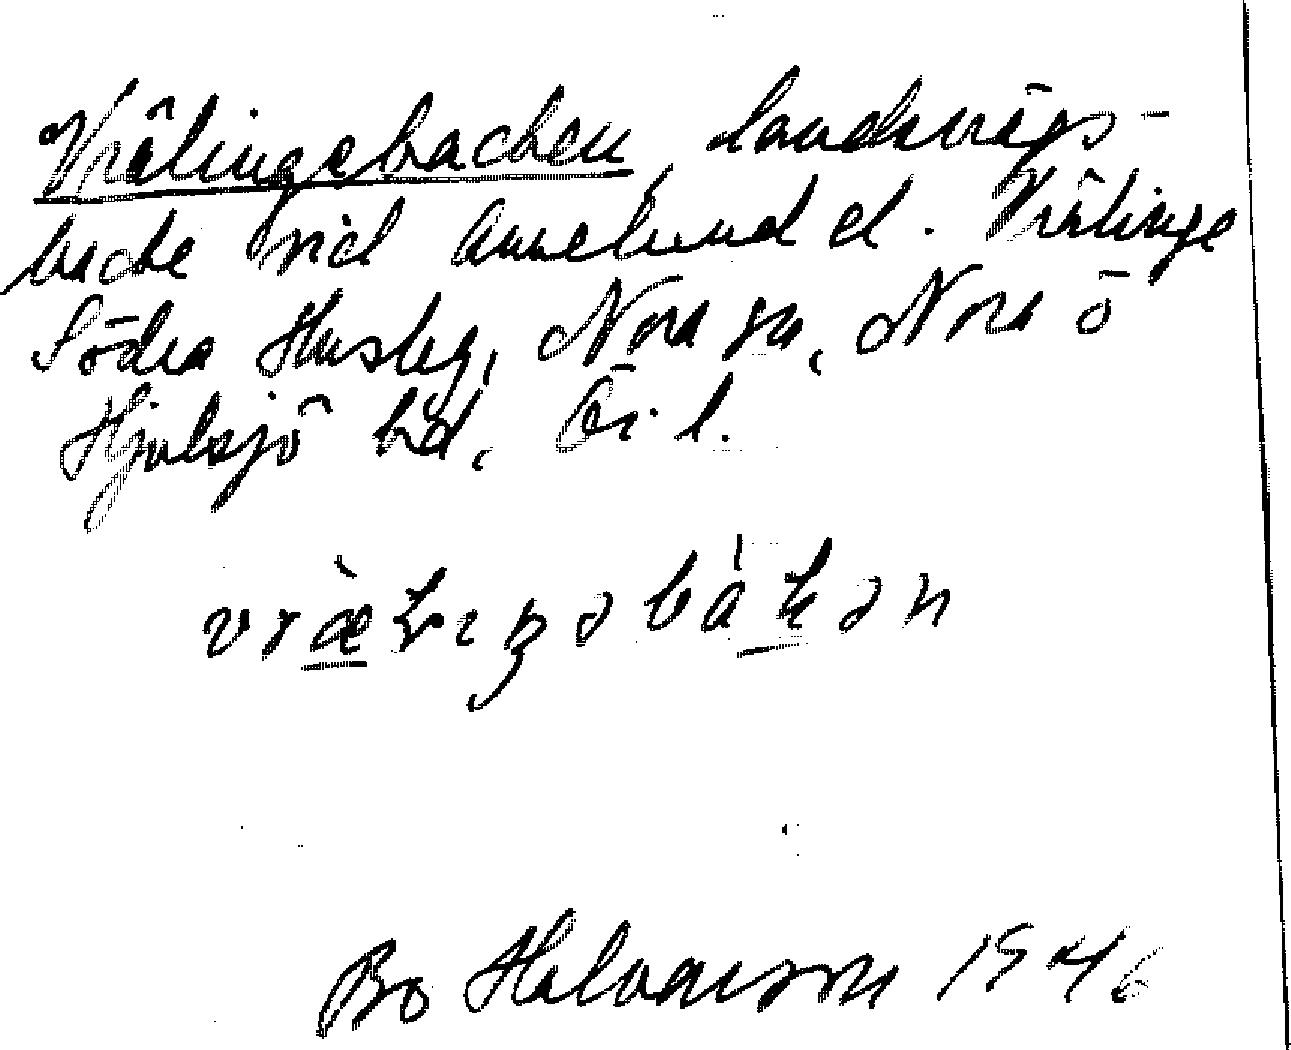 Vrälingebacken, landsvägs-
backe vid Annelund el. Vrälinge
Södra Husby, Nora sn, Nora o
Hjulsjö bd, Ör. l.
vræ̀lıŋəbákən
Bo Halvarsson 1946